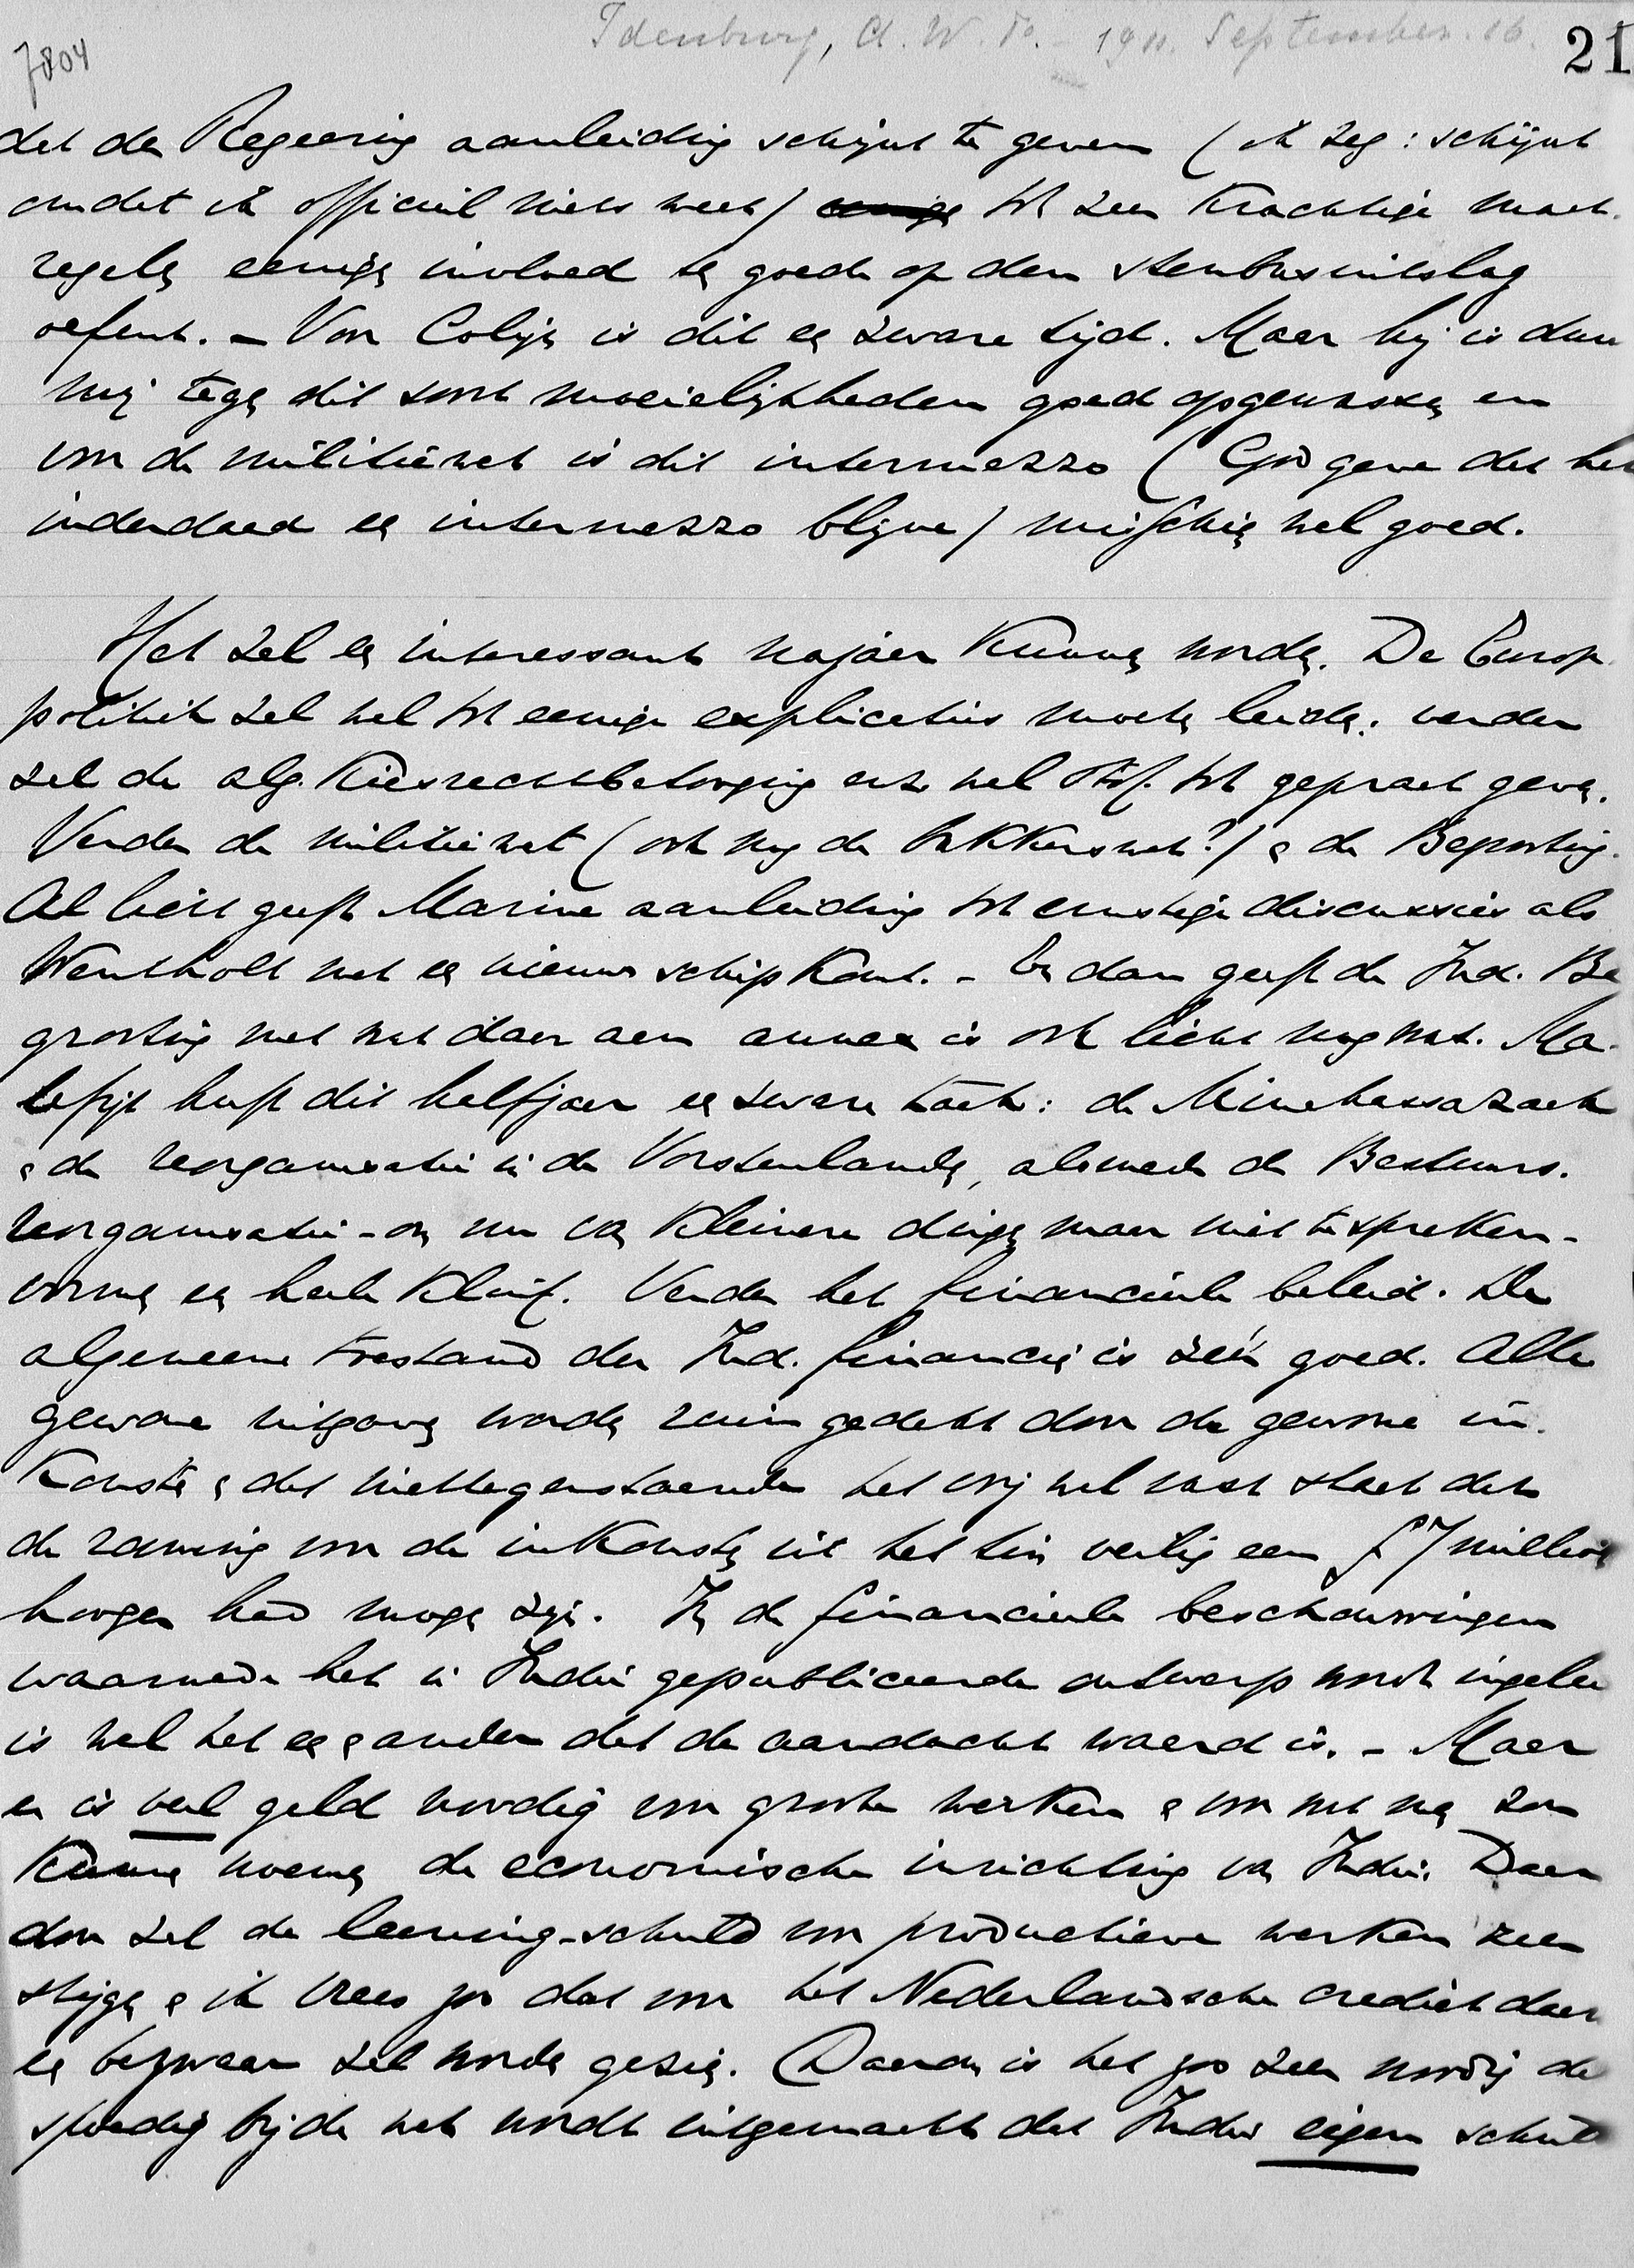 Idenburg, A.W.F. - 1911. September. 16.
7804
21
dat de Regeering aanleiding schijnt te geven (ik zeg: schijnt
omdat ik officieel niets weet) tot zeer krachtige maat-
regelen eenigen invloed ten goede op den stembusuitslag
oefent. – Voor Colijn is dit een zware tijd. Maar hij is dun
mij tegen dit soort moeielijkheden goed opgewassen en
voor de militiewet is dit intermezzo (God geve dat het
inderdaad een intermezzo blijve) misschien wel goed.
Het zal een interessant najaar kunnen worden. De Europ.
politiek zal wel tot eenige explicaties moeten leiden; verder
zal de alg. Kiesrechtbetooging enz wel stof tot gepraat geven.
Verder de militiewet (ook nog de Bakkerswet?) en de Begrooting.
Allicht geeft Marine aanleiding tot ernstige discussies als
Wentholt met een nieuw schip komt. – En dan geeft de Ind. Be
grooting met wat daar aan annex is ook licht nog wat. Ma-
lefijt heeft dit halfjaar een zware taak: de Minehassazaak
en de reorganisatie in de Vorstenlanden, alsmede de Bestuurs-
reorganisatie – om nu van kleinere dingen maar niet te spreken –
vormen een heele kluif. Verder het financieele beleid. De
algemeene toestand der Ind. financiën is zéér goed. Alle
gewone uitgaven worden ruim gedekt door de gewone in-
komsten en dat niettegenstaande het vrij wel vast staat dat
de raming van de inkomsten uit het tin veilig een f 7 millioen
hooger had mogen zijn. In de financieele beschouwingen
waarmede het in Indië gepubliceerde ontwerp wordt ingeleid
is wel het een en ander dat de aandacht waard is. – Maar
er is veel geld noodig voor groote werken en voor wat men zou
kunnen noemen de economische inrichting van Indië. Daar
door zal de leening-schuld voor productieve werken zeer
stijgen en ik vrees zoo dat voor het Nederlandsche crediet daar
een bezwaar zal worden gezien. Daarom is het zoo zeer noodig dat
spoedig bij de wet wordt uitgemaakt dat Indië eigen schuld